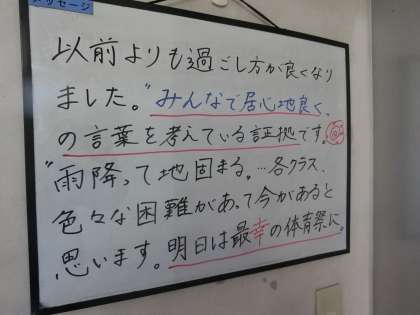 メッセージ
以前よりも過ごし方が良くなり
ました。"みんなで居心地良く、
の言葉を考えている証拠です。
"雨降って地固まる。…各クラス、
色々な困難があって今があると
思います。明日は最幸の体育祭に。